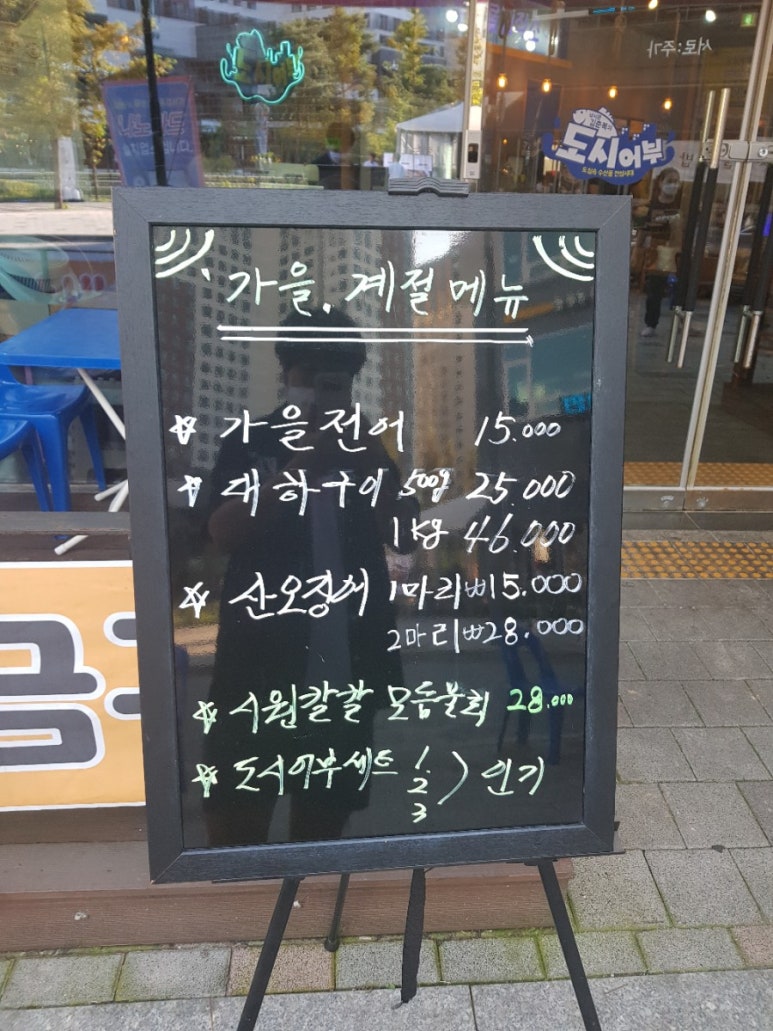 도시어부
가을. 계절메뉴
☆ 가을전어 15.000
☆ 대하구이 500g 25.000
1kg 46.000
☆ 산오징어 1마리₩15.000
2마리₩28.000
☆ 시원칼칼 모듬물회 28.000
☆ 도시어부세트 1.
2
3
) 인기